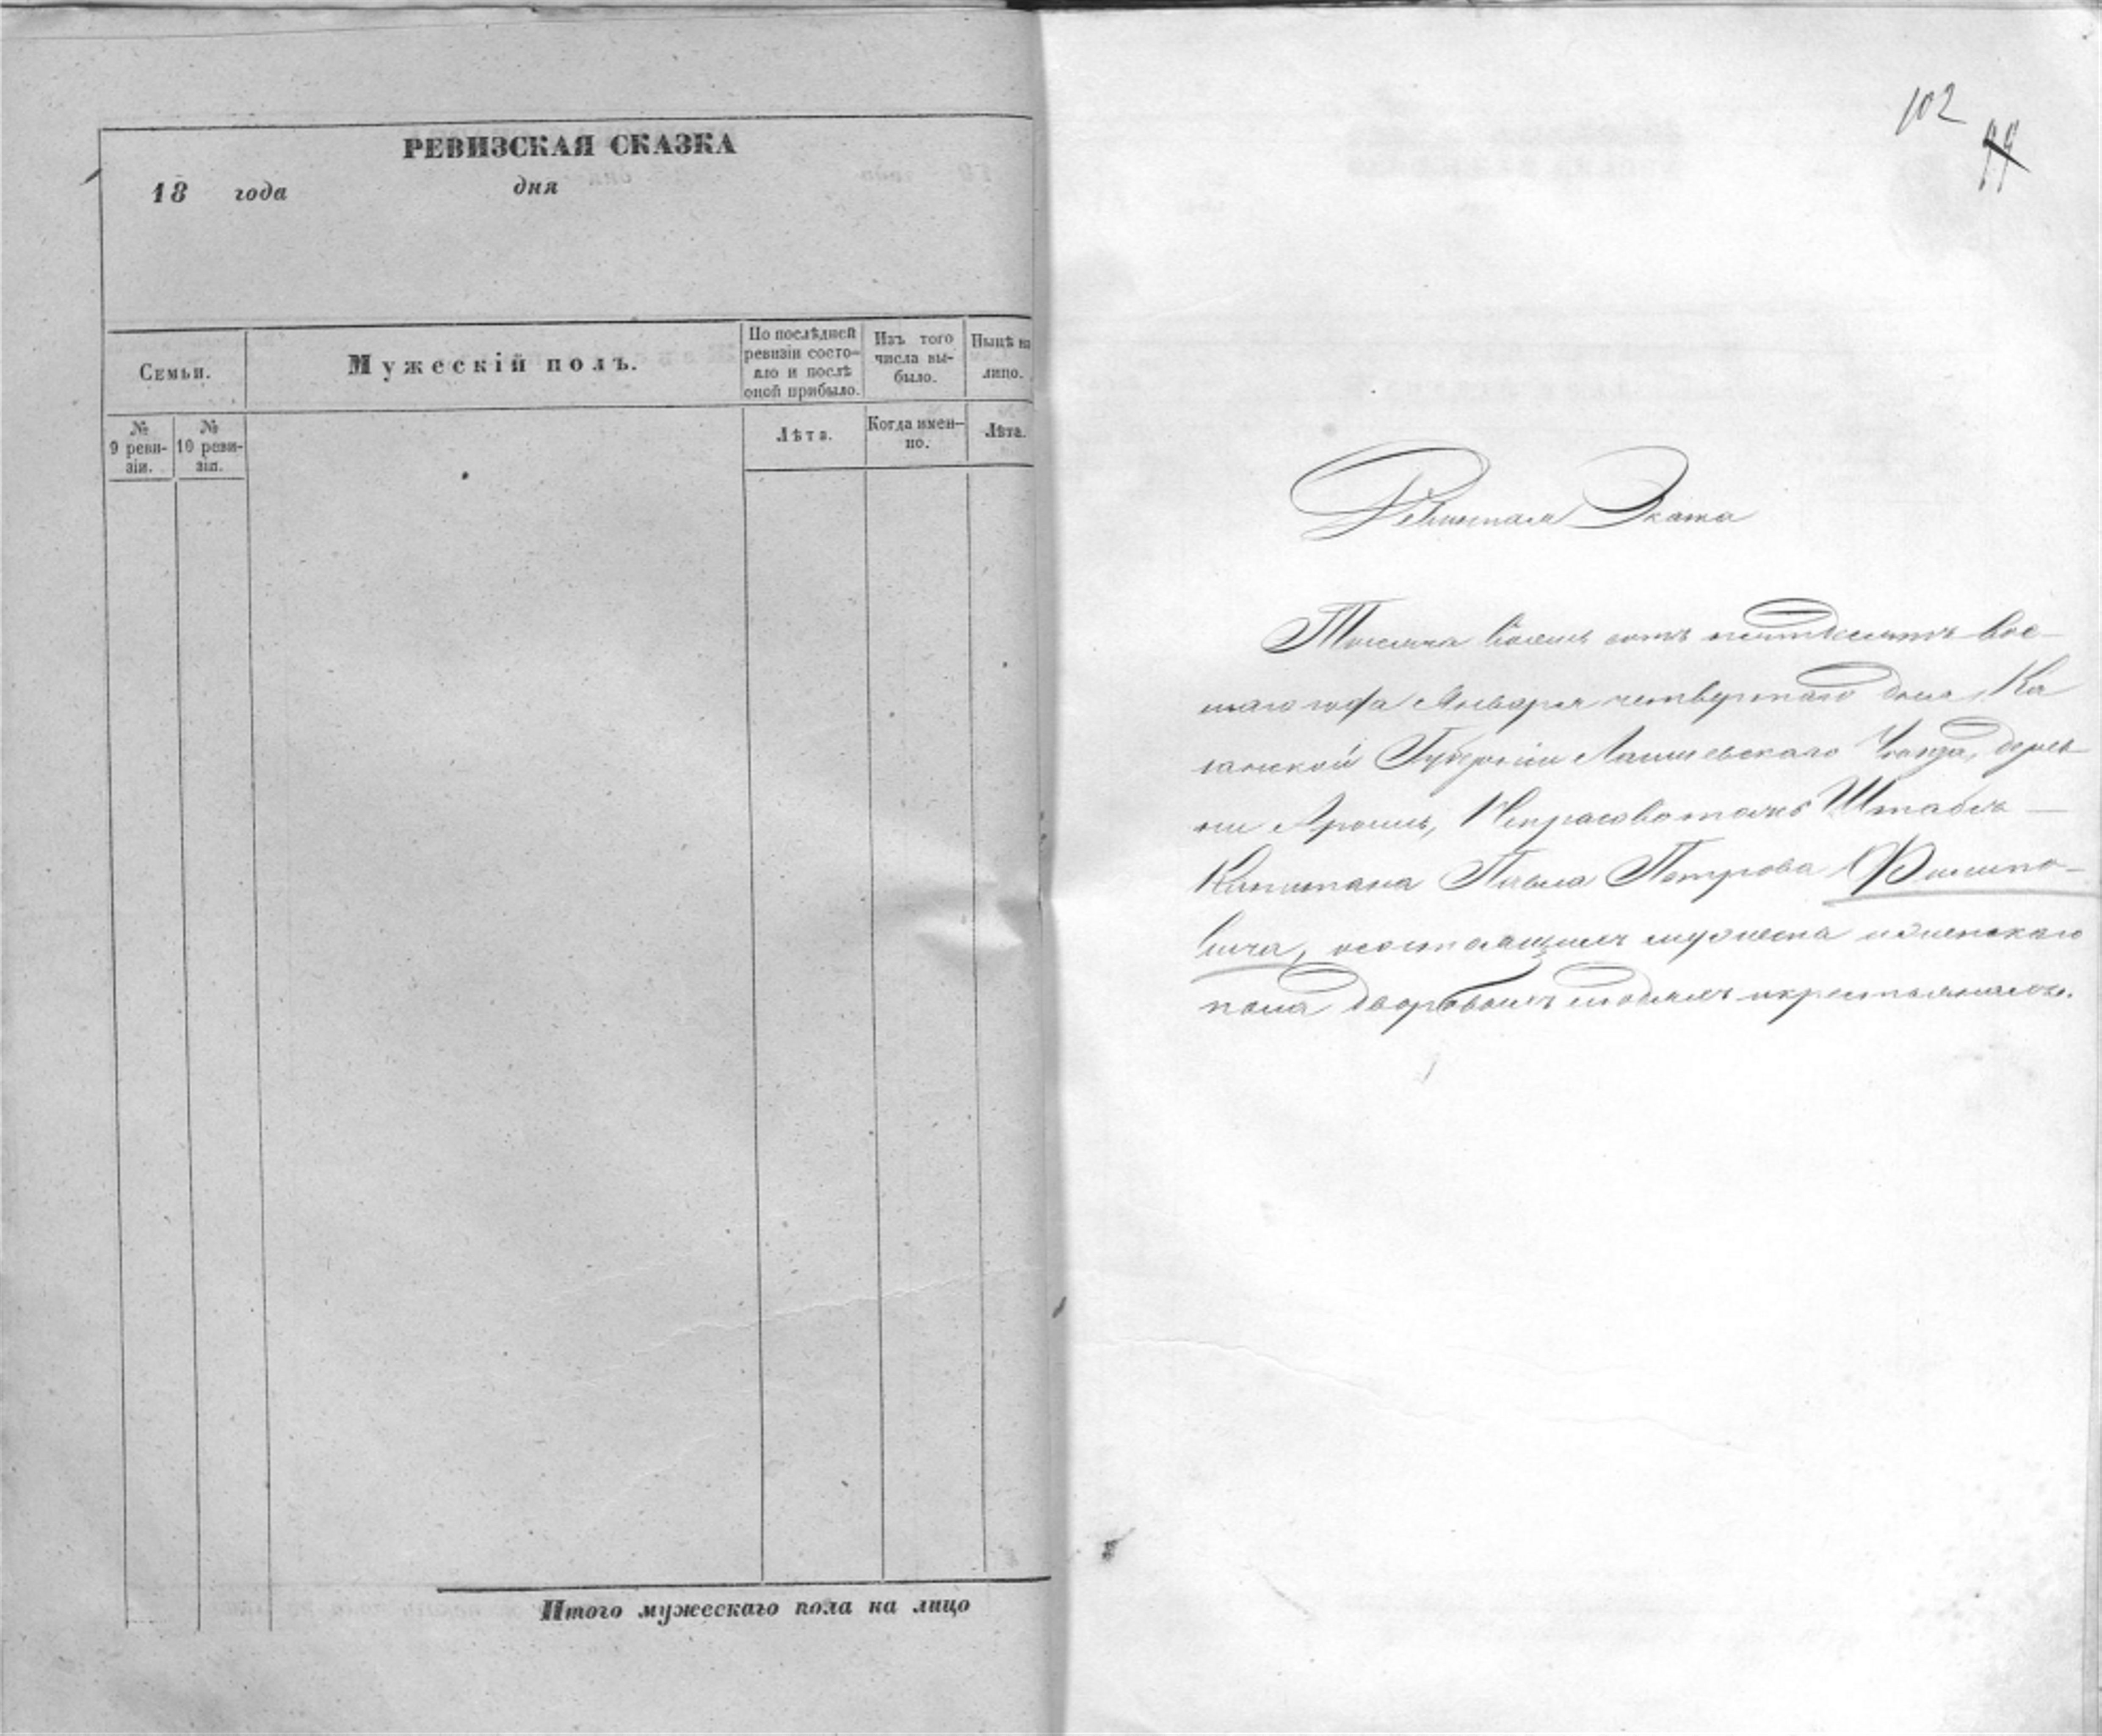 РЕВИЗСКАЯ СКАЗКА
18 года дня
Семьи.
Мужескій полъ.
По послѣдней ревизіи состояло и послѣ оной прибыло.
Изъ того числа выбыло.
Нынѣ на лицо.
№ 9 ревизіи.
№ 10 ревизіи.
Лѣта.
Когда именно.
Лѣта.
Итого мужескаго пола на лицо
102
99
Ревизская Сказка
Тысяча восемь сотъ пятьдесятъ вос-
маго года Января четвертаго дня, Ка
занской Губерніи Лаишевскаго Уезда, дерев
ни Некрасово тожъ Штабсъ-
Капитана Павла Петрова Филипо-
вича, о состоящихъ мужеска и женскаго
пола дворовыхъ людяхъ и крестьянахъ.